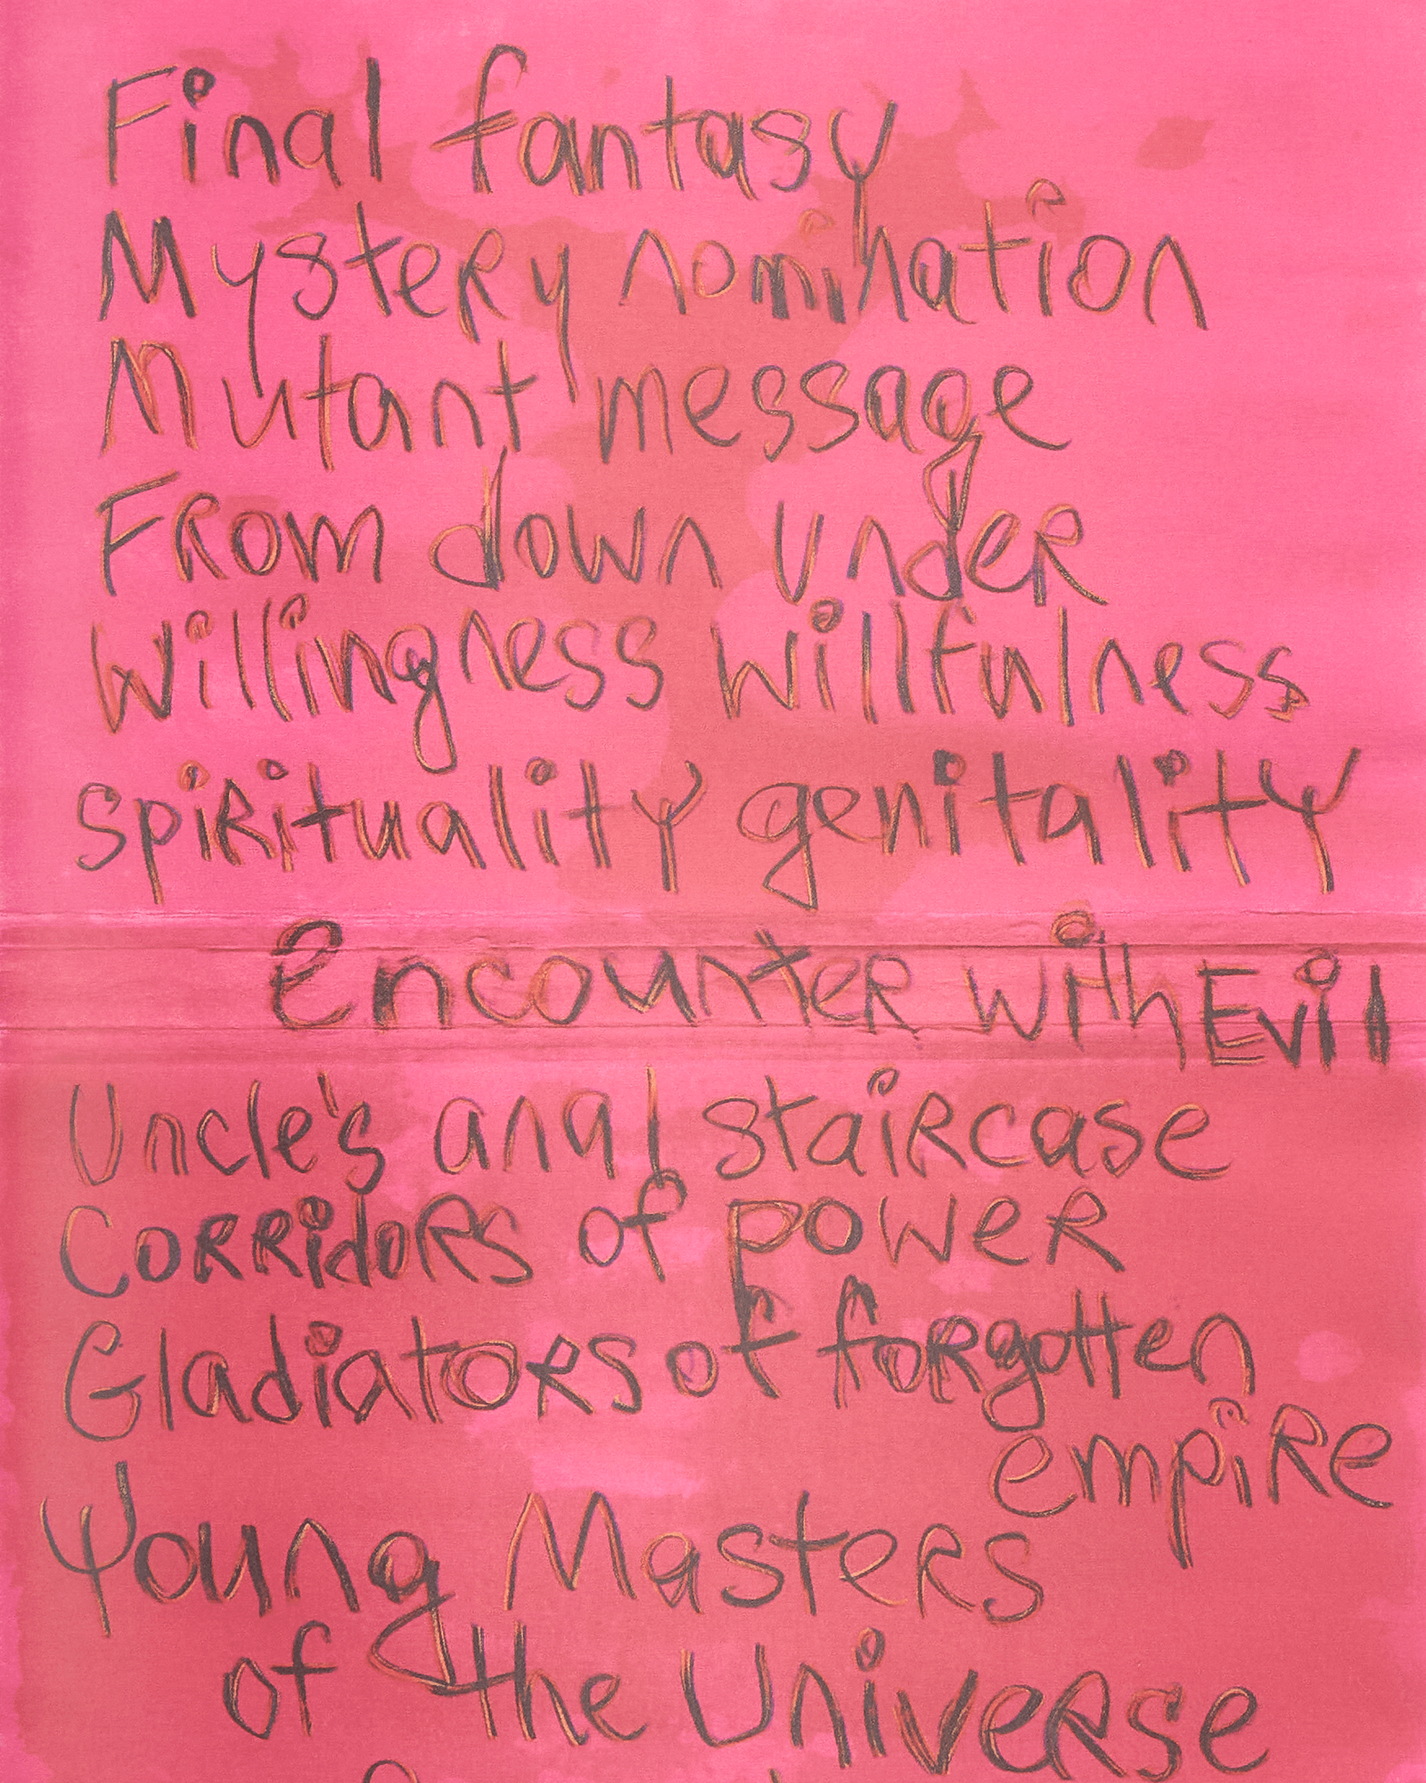 Final fantasy
Mystery nomination
Mutant message
From down under
Willingness Willfulness
Spirituality genitality
Encounter with Evil
Uncle's anal staircase
Corridors of power
Gladiators of forgotten
empire
Young Masters
of the Universe